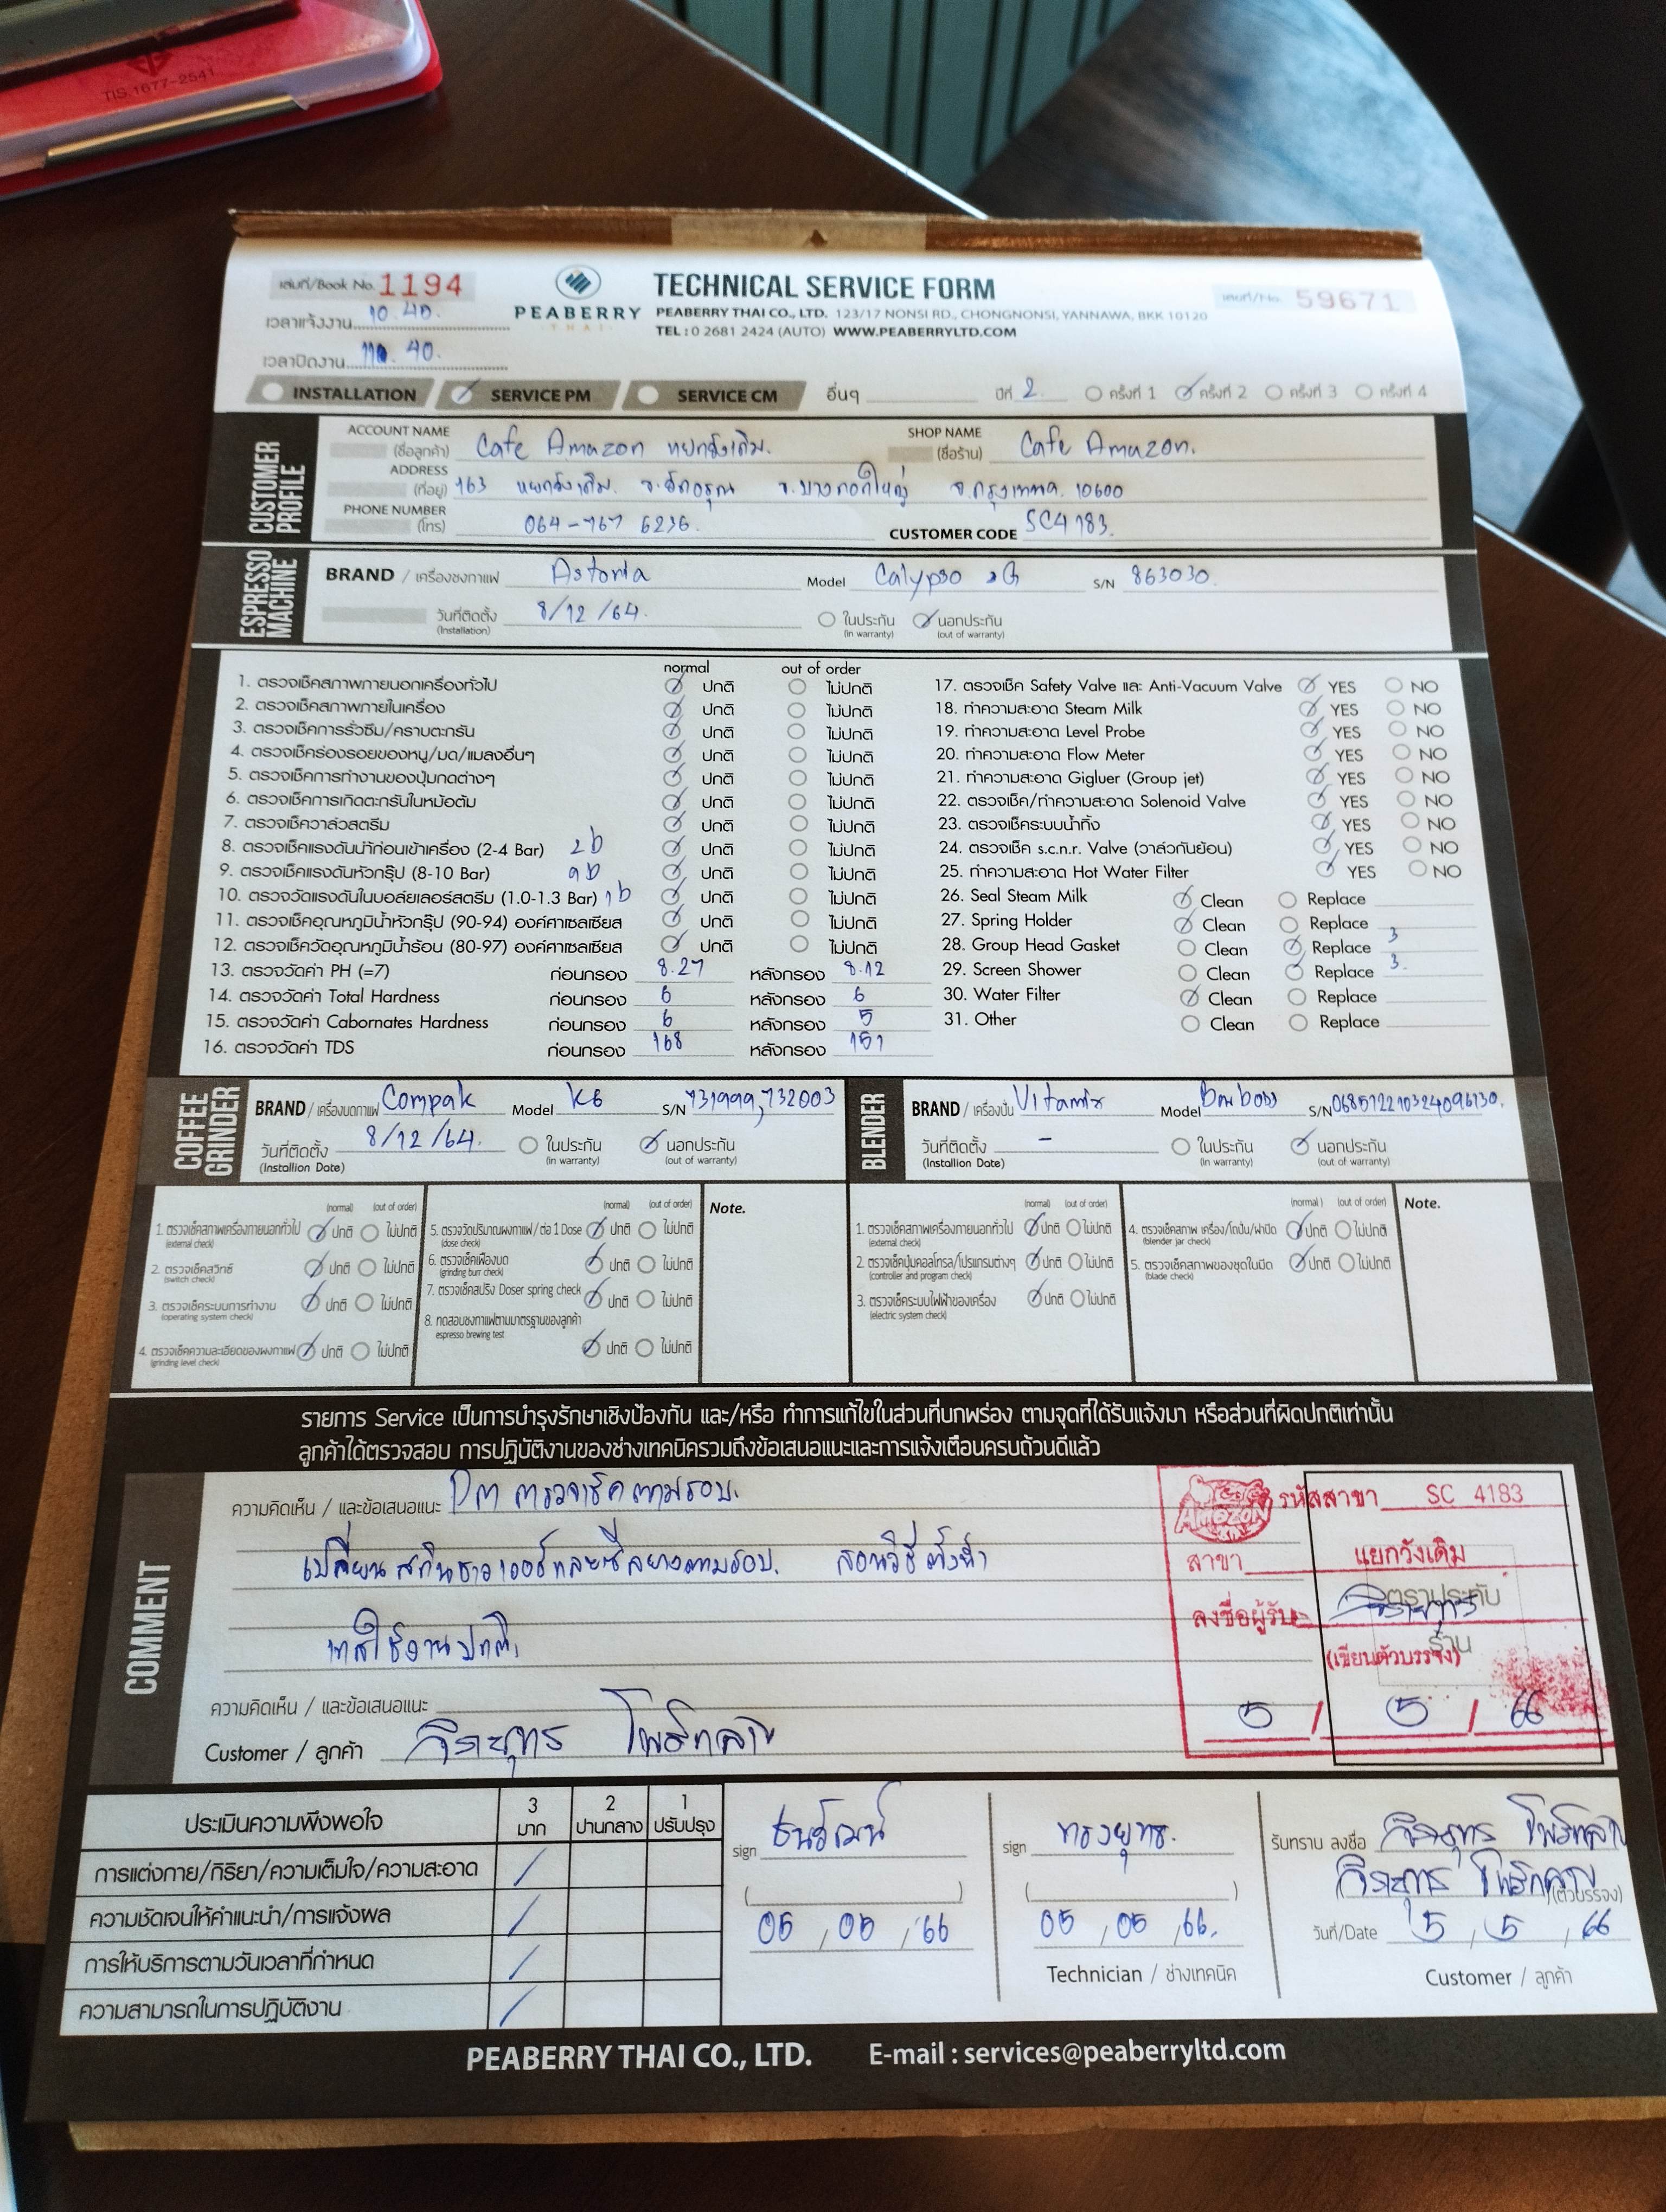 TIS.1677-2541
เล่มที่/Book No. 1194
PEABERRY
THAI
TECHNICAL SERVICE FORM
เลขที่/No. 59671
PEABERRY THAI CO., LTD. 123/17 NONSI RD., CHONGNONSI, YANNAWA, BKK 10120
TEL : 0 2681 2424 (AUTO) WWW.PEABERRYLTD.COM
เวลาแจ้งงาน 10.40.
เวลาปิดงาน 40.
INSTALLATION SERVICE PM SERVICE CM อื่นๆ ปีที่ 2 ครั้งที่ 1 ครั้งที่ 2 ครั้งที่ 3 ครั้งที่ 4
CUSTOMER PROFILE
ACCOUNT NAME (ชื่อลูกค้า) Cafe Amazon แยกวังเดิม. SHOP NAME (ชื่อร้าน) Cafe Amazon.
ADDRESS (ที่อยู่) 163 แยกวังเดิม. ข.วัดอรุณ ข.บางกอกใหญ่ จ.กรุงเทพฯ. 10600
PHONE NUMBER (โทร) 064-767 6236. CUSTOMER CODE SC4183.
ESPRESSO MACHINE
BRAND / เครื่องชงกาแฟ Astoria Model Calypso 2G S/N 863030.
วันที่ติดตั้ง (Installation) 8/12/64. ในประกัน (in warranty) นอกประกัน (out of warranty)
normal out of order
1. ตรวจเช็คสภาพภายนอกเครื่องทั่วไป ปกติ ไม่ปกติ
2. ตรวจเช็คสภาพภายในเครื่อง ปกติ ไม่ปกติ
3. ตรวจเช็คการรั่วซึม/คราบตะกรัน ปกติ ไม่ปกติ
4. ตรวจเช็คร่องรอยของหนู/มด/แมลงอื่นๆ ปกติ ไม่ปกติ
5. ตรวจเช็คการทำงานของปุ่มกดต่างๆ ปกติ ไม่ปกติ
6. ตรวจเช็คการเกิดตะกรันในหม้อต้ม ปกติ ไม่ปกติ
7. ตรวจเช็ควาล์วสตรีม ปกติ ไม่ปกติ
8. ตรวจเช็คแรงดันน้ำก่อนเข้าเครื่อง (2-4 Bar) 2b ปกติ ไม่ปกติ
9. ตรวจเช็คแรงดันหัวกรุ๊ป (8-10 Bar) 9b ปกติ ไม่ปกติ
10. ตรวจวัดแรงดันในบอล์ยเลอร์สตรีม (1.0-1.3 Bar) 1b ปกติ ไม่ปกติ
11. ตรวจเช็คอุณหภูมิน้ำหัวกรุ๊ป (90-94) องค์ศาเซลเซียส ปกติ ไม่ปกติ
12. ตรวจเช็ควัดอุณหภูมิน้ำร้อน (80-97) องค์ศาเซลเซียส ปกติ ไม่ปกติ
13. ตรวจวัดค่า PH (=7) ก่อนกรอง 8.27 หลังกรอง 8.12
14. ตรวจวัดค่า Total Hardness ก่อนกรอง 6 หลังกรอง 6
15. ตรวจวัดค่า Cabornates Hardness ก่อนกรอง 6 หลังกรอง 5
16. ตรวจวัดค่า TDS ก่อนกรอง 168 หลังกรอง 151
17. ตรวจเช็ค Safety Valve และ Anti-Vacuum Valve YES NO
18. ทำความสะอาด Steam Milk YES NO
19. ทำความสะอาด Level Probe YES NO
20. ทำความสะอาด Flow Meter YES NO
21. ทำความสะอาด Gigluer (Group jet) YES NO
22. ตรวจเช็ค/ทำความสะอาด Solenoid Valve YES NO
23. ตรวจเช็คระบบน้ำทิ้ง YES NO
24. ตรวจเช็ค s.c.n.r. Valve (วาล์วกันย้อน) YES NO
25. ทำความสะอาด Hot Water Filter YES NO
26. Seal Steam Milk Clean Replace
27. Spring Holder Clean Replace
28. Group Head Gasket Clean Replace 3
29. Screen Shower Clean Replace 3.
30. Water Filter Clean Replace
31. Other Clean Replace
COFFEE GRINDER
BRAND / เครื่องบดกาแฟ Compak Model K6 S/N 731999,732003
วันที่ติดตั้ง (Installion Date) 8/12/64. ในประกัน (in warranty) นอกประกัน (out of warranty)
BLENDER
BRAND / เครื่องปั่น Vitamix Model S/N 068512210324096130.
วันที่ติดตั้ง (Installion Date) - ในประกัน (in warranty) นอกประกัน (out of warranty)
(normal) (out of order)
1. ตรวจเช็คสภาพเครื่องภายนอกทั่วไป (external check) ปกติ ไม่ปกติ
2. ตรวจเช็คสวิทซ์ (switch check) ปกติ ไม่ปกติ
3. ตรวจเช็คระบบการทำงาน (operating system check) ปกติ ไม่ปกติ
4. ตรวจเช็คความละเอียดของผงกาแฟ (grinding level check) ปกติ ไม่ปกติ
(normal) (out of order)
5. ตรวจวัดปริมาณผงกาแฟ/ต่อ 1 Dose (dose check) ปกติ ไม่ปกติ
6. ตรวจเช็คเฟืองบด (grinding burr check) ปกติ ไม่ปกติ
7. ตรวจเช็คสปริง Doser spring check ปกติ ไม่ปกติ
8. ทดสอบชงกาแฟตามมาตรฐานของลูกค้า espresso brewing test ปกติ ไม่ปกติ
Note.
(normal) (out of order)
1. ตรวจเช็คสภาพเครื่องภายนอกทั่วไป (external check) ปกติ ไม่ปกติ
2. ตรวจเช็คปุ่มคอลโทรล/โปรแกรมต่างๆ (controller and program check) ปกติ ไม่ปกติ
3. ตรวจเช็คระบบไฟฟ้าของเครื่อง (electric system check) ปกติ ไม่ปกติ
(normal) (out of order)
4. ตรวจเช็คสภาพ เครื่อง/โถปั่น/ฝาปิด (blender jar check) ปกติ ไม่ปกติ
5. ตรวจเช็คสภาพของชุดใบมีด (blade check) ปกติ ไม่ปกติ
Note.
รายการ Service เป็นการบำรุงรักษาเชิงป้องกัน และ/หรือ ทำการแก้ไขในส่วนที่บกพร่อง ตามจุดที่ได้รับแจ้งมา หรือส่วนที่ผิดปกติเท่านั้น
ลูกค้าได้ตรวจสอบ การปฏิบัติงานของช่างเทคนิครวมถึงข้อเสนอแนะและการแจ้งเตือนครบถ้วนดีแล้ว
COMMENT
ความคิดเห็น / และข้อเสนอแนะ PM ตรวจเช็คตามรอบ.
เปลี่ยนสกรีนชาวเวอร์และซีลยางตามรอบ. สอนวิธีตั้งน้ำ
เทสใช้งานปกติ.
ความคิดเห็น / และข้อเสนอแนะ
Customer / ลูกค้า จิรายุทธ
AMAZON รหัสสาขา SC 4183
สาขา แยกวังเดิม
ตราประทับ
ลงชื่อผู้รับ จิรายุทธ
ร้าน
(เขียนตัวบรรจง)
5 / 5 / 66
ประเมินความพึงพอใจ 3 มาก 2 ปานกลาง 1 ปรับปรุง
การแต่งกาย/กิริยา/ความเต็มใจ/ความสะอาด
ความชัดเจนให้คำแนะนำ/การแจ้งผล
การให้บริการตามวันเวลาที่กำหนด
ความสามารถในการปฏิบัติงาน
sign ธนวัฒน์
05 , 05 , 66
sign ทรงยุทธ.
05 , 05 , 66.
Technician / ช่างเทคนิค
รับทราบ ลงชื่อ จิรายุทธ
จิรายุทธ (ตัวบรรจง)
วันที่/Date 5 , 5 , 66
Customer / ลูกค้า
PEABERRY THAI CO., LTD. E-mail : services@peaberryltd.com